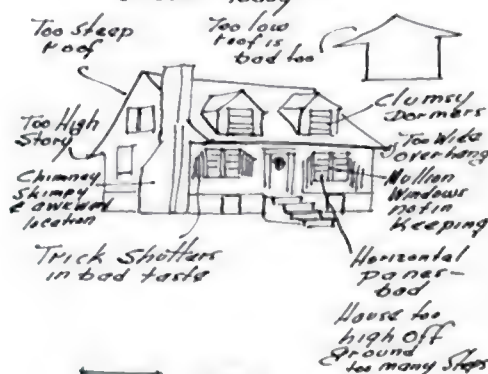 Today
Too steep
roof
Too low
roof is
bad too
Clumsy
Dormers
Too High
Story
Too Wide
overhang
Chimney
skimpy
& awkward
location
Mullion
Windows
not in
Keeping
Trick Shutters
in bad taste
Horizontal
panes-
bad
House too
high off
ground
too many steps